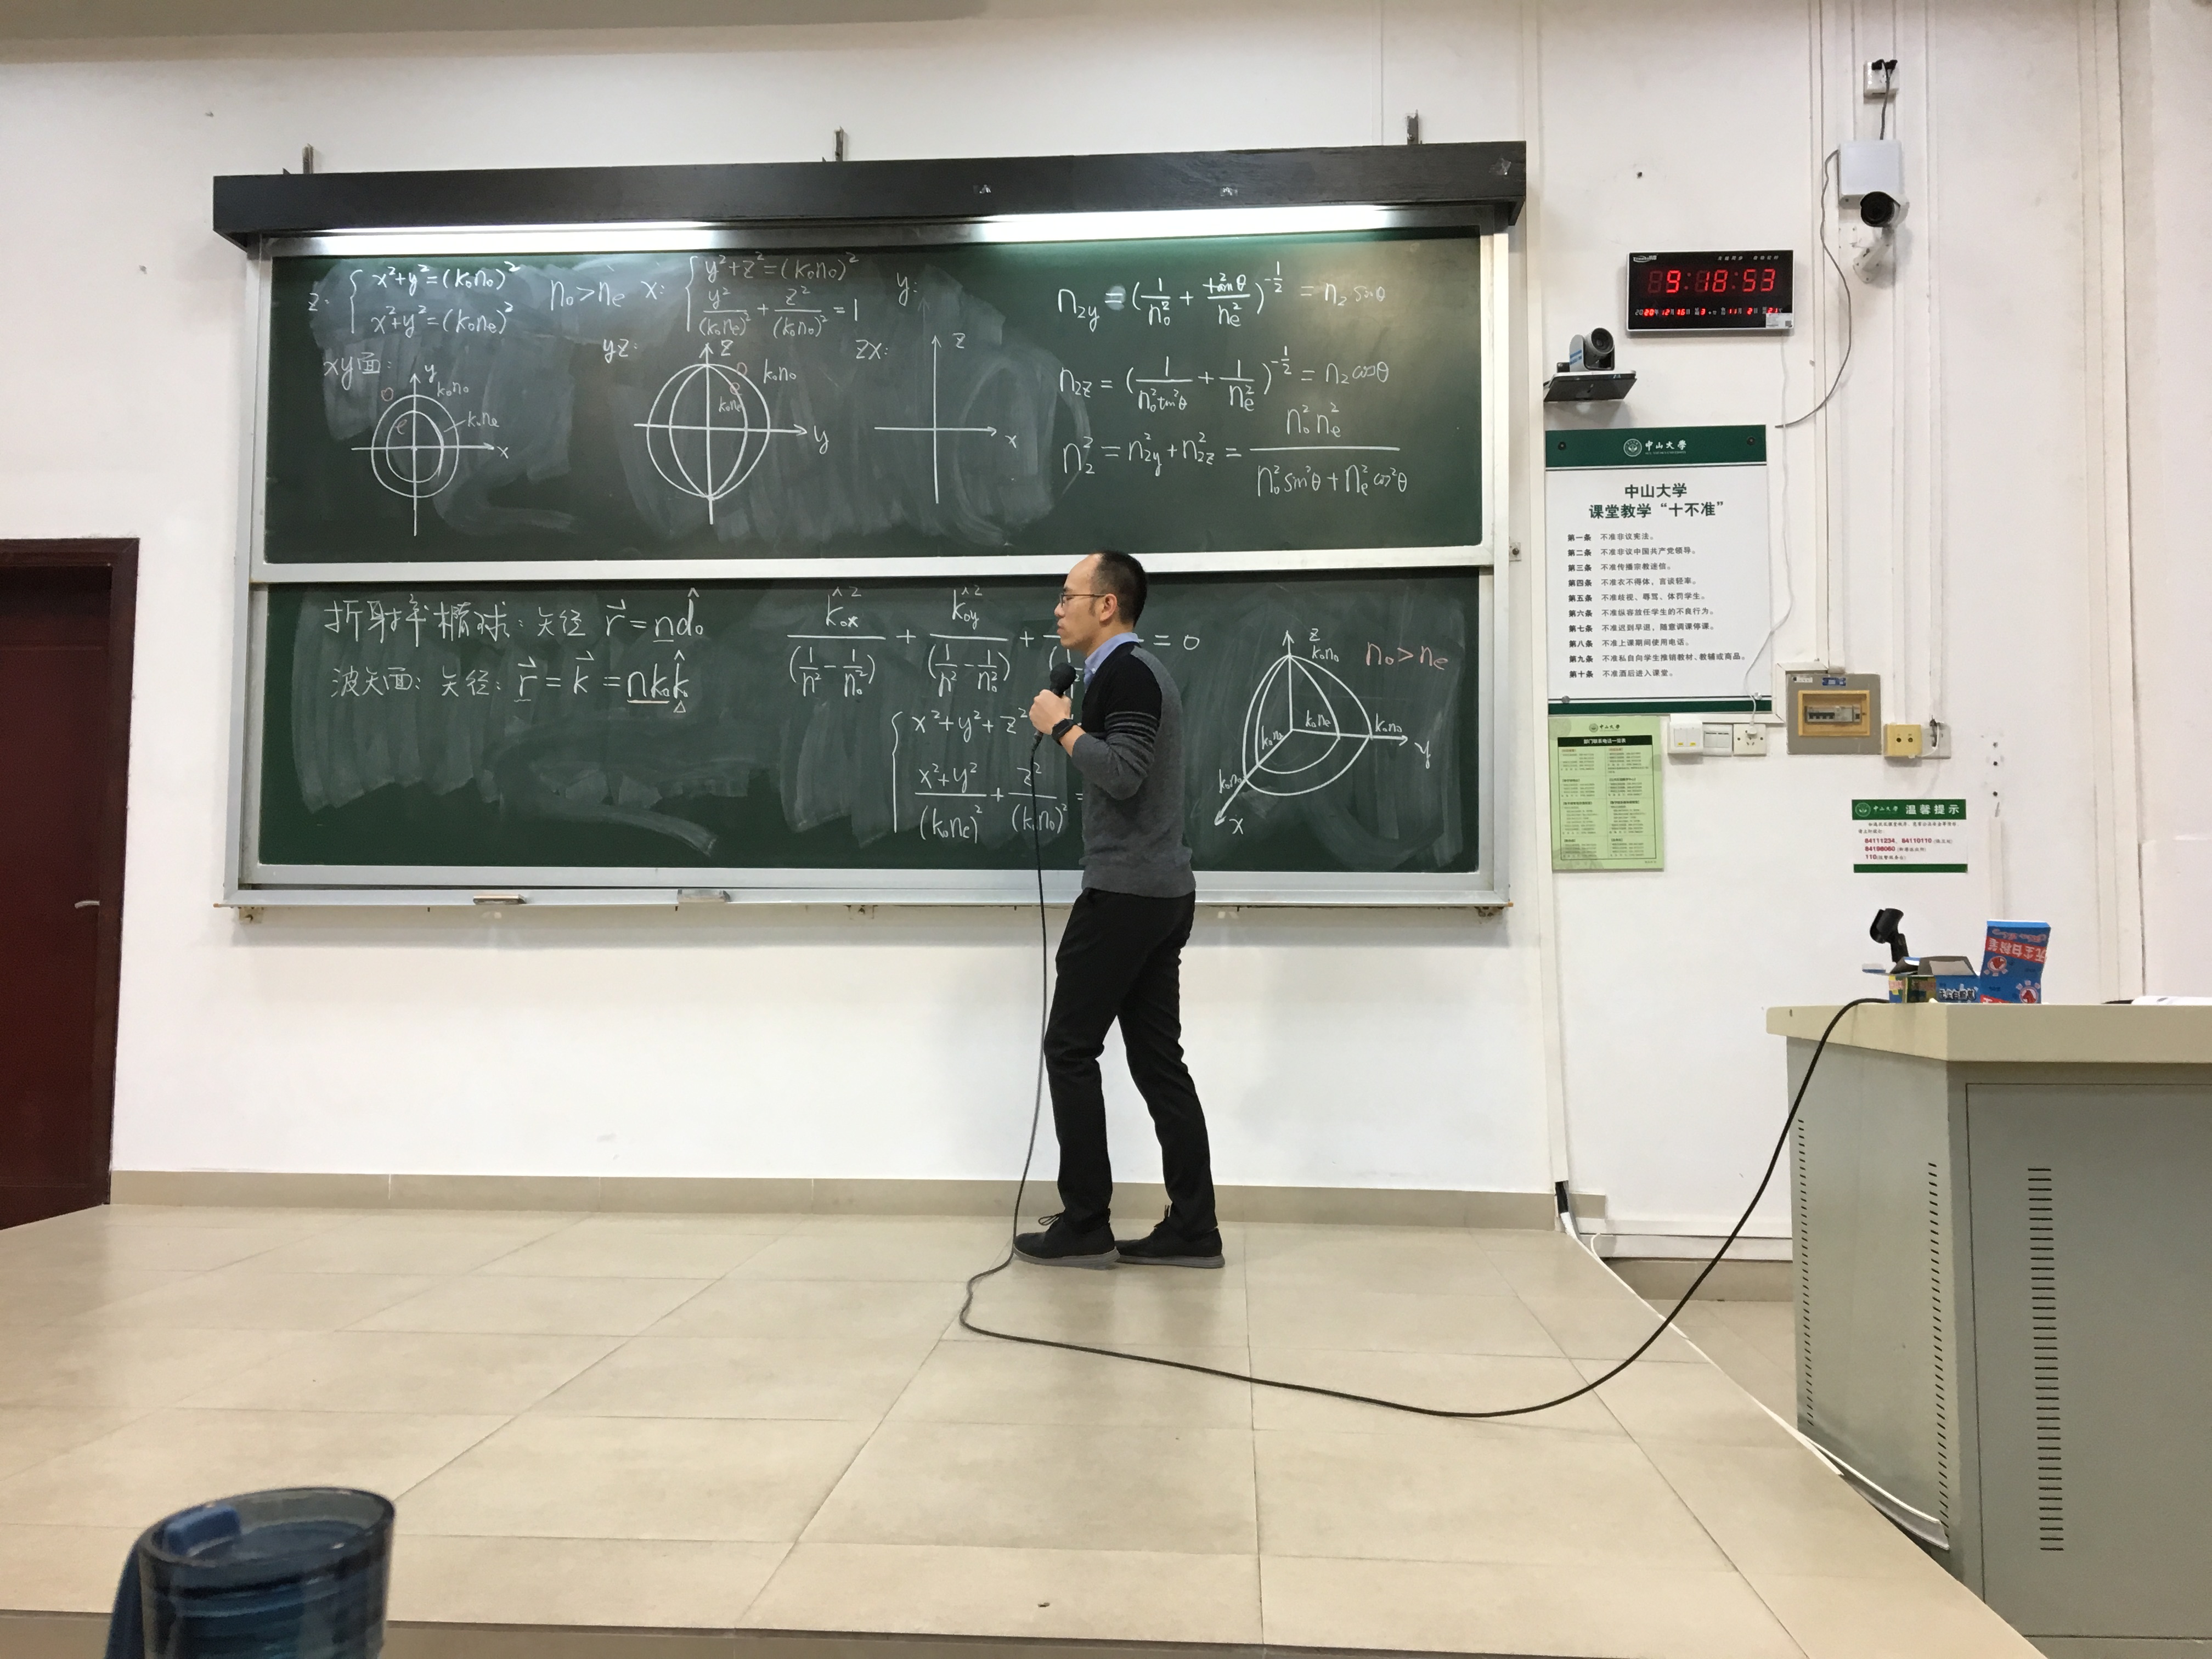 z: { x²+y²=(k₀n₀)²
x²+y²=(k₀nₑ)²
n₀>nₑ
x: { y²+z²=(k₀n₀)²
y²/(k₀nₑ)² + z²/(k₀n₀)² =1
y:
xy面:
y
k₀n₀
o
k₀nₑ
e
x
yz:
z
o
k₀n₀
e
k₀nₑ
y
zx:
z
x
n₂y = (1/n₀² + tan²θ/nₑ²)^(-1/2) = n₂ sinθ
n₂z = (1/(n₀²tan²θ) + 1/nₑ²)^(-1/2) = n₂ cosθ
n₂² = n₂y² + n₂z² = n₀²nₑ²/(n₀²sin²θ + nₑ²cos²θ)
折射率椭球: 矢径 r⃗ = nd̂₀
波矢面: 矢径: r⃗ = k⃗ = nk₀k̂₀
k̂₀ₓ²/(1/n² - 1/n₀²) + k̂₀y²/(1/n² - 1/n₀²) + = 0
{ x²+y²+z²
(x²+y²)/(k₀nₑ)² + z²/(k₀n₀)² =
z
k₀n₀
n₀>nₑ
k₀nₑ
k₀n₀
y
k₀nₑ
k₀n₀
x
9:18:53
中山大学
中山大学
课堂教学“十不准”
第一条 不准非议宪法。
第二条 不准非议中国共产党领导。
第三条 不准传播宗教迷信。
第四条 不准衣不得体，言谈轻率。
第五条 不准歧视、辱骂、体罚学生。
第六条 不准纵容放任学生的不良行为。
第七条 不准迟到早退，随意调课停课。
第八条 不准上课期间使用电话。
第九条 不准私自向学生推销教材、教辅或商品。
第十条 不准酒后进入课堂。
中山大学
中山大学 温馨提示
84111234、84110110
84198060
110